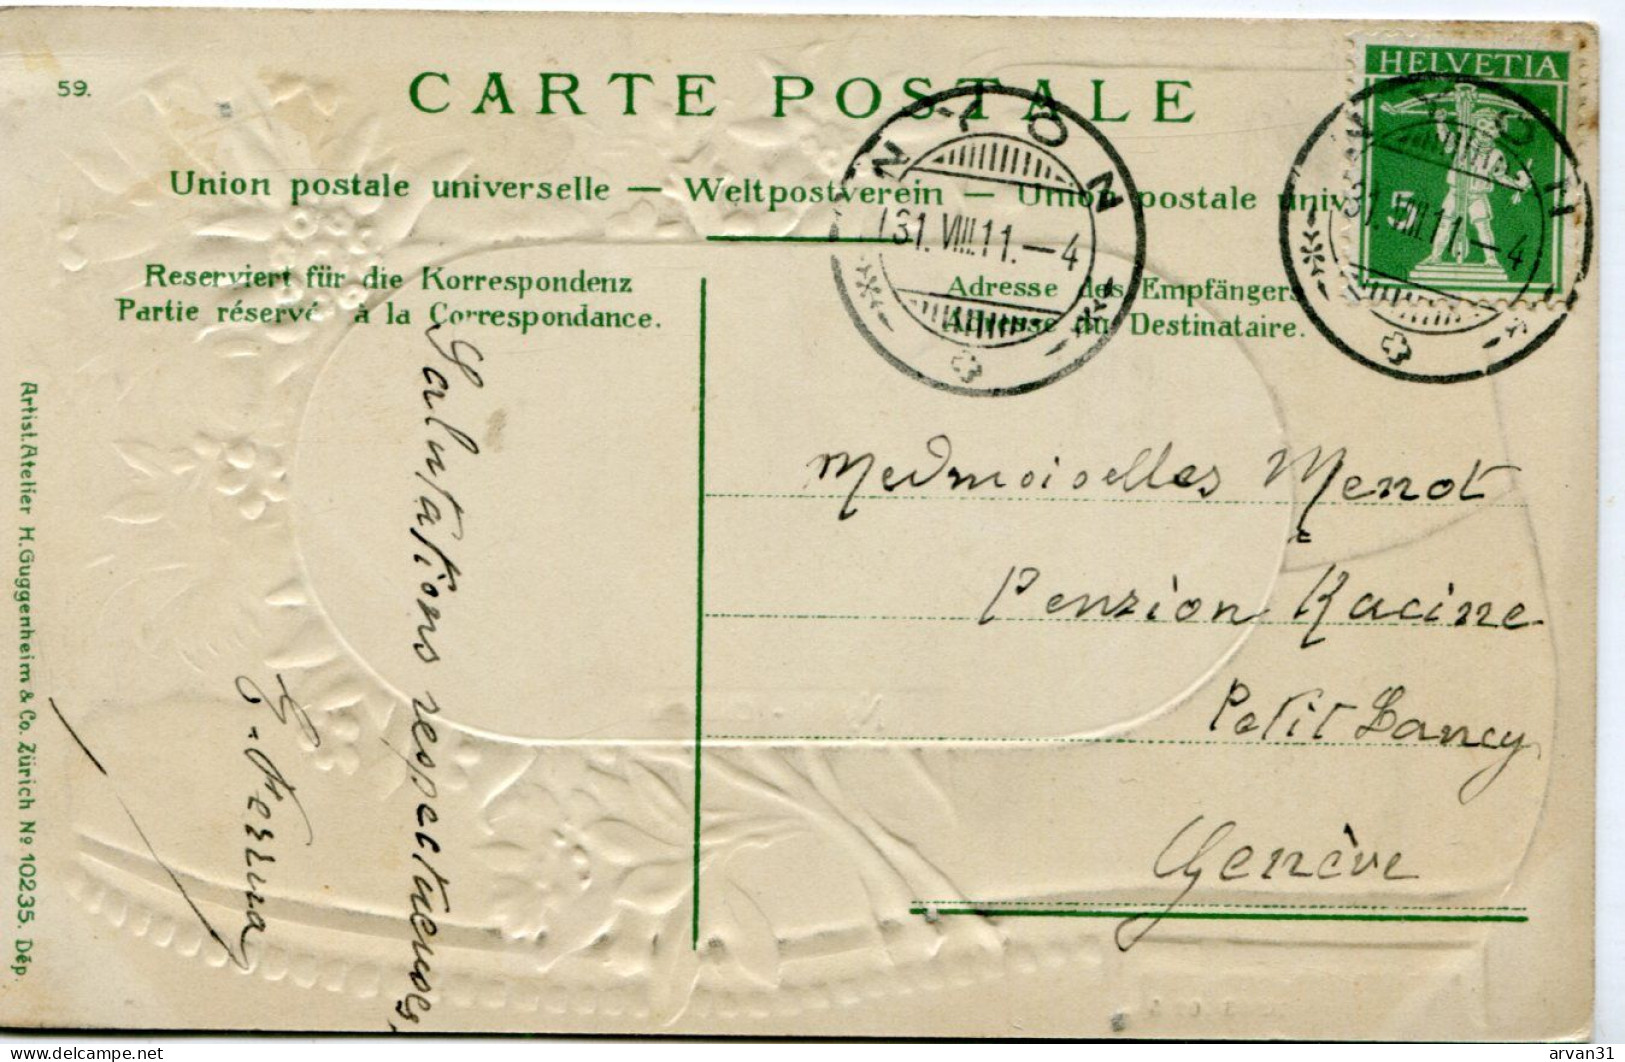 59.
CARTE POSTALE
HELVETIA
5
Union postale universelle — Weltpostverein — Union postale univ
NYON
31.VIII.11.–4
NYON
31.VIII.11.–4
Reserviert für die Korrespondenz
Partie réservé à la Correspondance.
Adresse des Empfängers
Adresse du Destinataire.
Salutations respectueuses,
Medmoiselles Menot
Penzion Racine
Petit Lancy
Genève
Artist. Atelier H. Guggenheim & Co. Zürich No 10235. Dép.
delcampe.net
arvan31